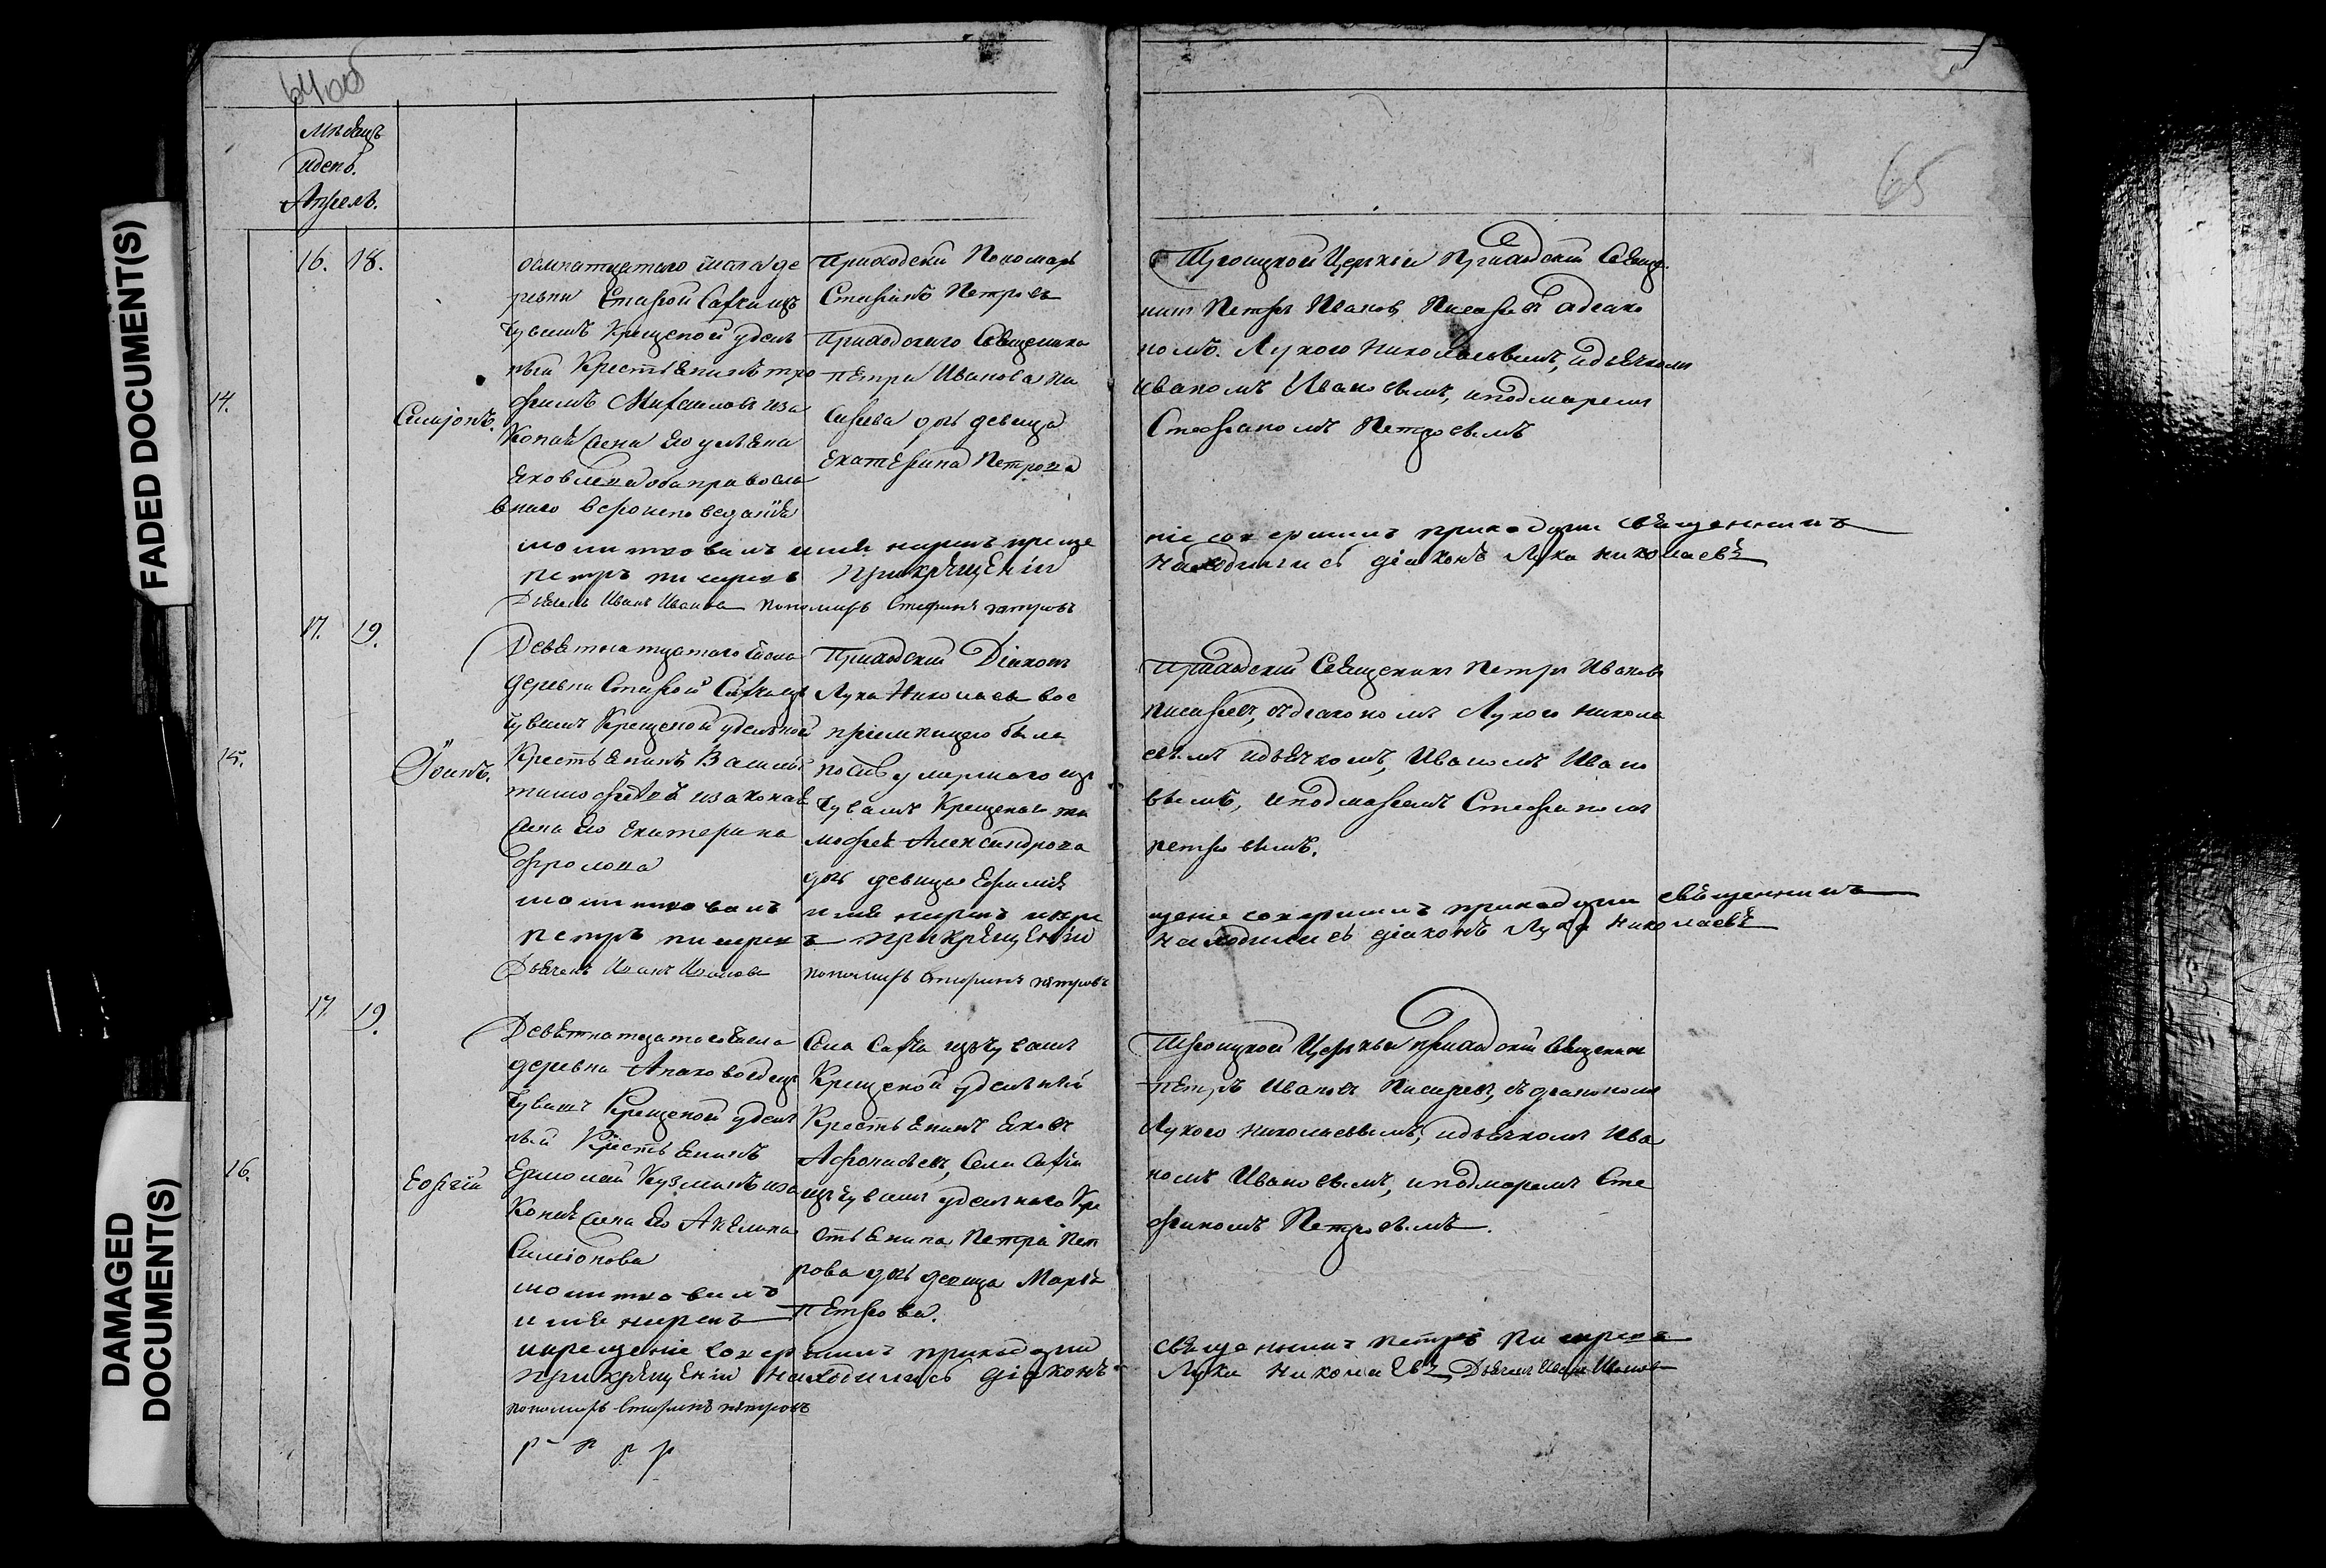 64об
65
Мѣсецъ
и день.
Апрель.
14.
16. 18.
Симіонъ.
осмнатцатаго числа де
ревни Старой Савки изъ
Чувашъ Крещеной удель
ный Крестьѣнинъ тро
фимъ Михаиловъ иза
Конай жена Его улѣяна
Яковлева оба правосла
внаго вероисповеданія
Приходский Пономарь
Стефанъ Петровъ
приходскаго Священика
петра Иванова Пи
сарева дочь девица
Екатерина Петрова
Троицкой Церкви Приходский Священ
никъ Петръ Иванов Писаревъ здеако
номъ. Лукою Николаевымъ, идьячкомъ
Иваномъ Ивановымъ, ипономаремъ
Стефаномъ Петровымъ
молитвовалъ имя нарекъ креще
ніе совершилъ приходски священникъ
петръ писаревъ прикрѣщеніи
находились діаконъ Лука николаевъ
Дьячекъ Иванъ Иванова пономарь Стефанъ петровъ
15.
17. 19.
Іоанъ.
Деветнатцатаго числа
деревни Старой Савки изъ
Чувашъ Крещеной удельной
Крестьянинъ Василий
тимофеевъ изаконая
жена Его Екатерина
Фролова
Приходский Діаконъ
Лука Николаевъ вос
пріемницею была
после умершаго изъ
Чувашъ Крещенаго ти
мофея Александрова
дочь девица Ефимія
приходский Священикъ Петръ Ивановъ
писаревъ, съдеакономъ Лукою Никола
евымъ идьячкомъ, Иваномъ Ивано
вымъ, ипономаремъ Стефаномъ
петровымъ.
молитвовалъ имя нарекъ икре
щеніе совершилъ приходски свѣщенникъ
петръ писаревъ прикрѣщеніи
находились діаконъ Лука Николаевъ
Дьячекъ Иванъ Иванова пономарь Стефанъ петровъ
16.
17. 19.
Георгій
Деветнатцатаго числа
деревни Апаковой изъ
Чувашъ Крещеной удель
ный Крестьянинъ
Ермолай Кузминъ иза
Коная жена Его Ангелина
Симіонова
Села Савки изъчувашъ
Крещеной удельный
Крестьянинъ Яковъ
Афонасьевъ, Села Савки
изъчувашъ уделнаго Кре
стьянина Петра Пет
рова дочь девица Марья
петрова.
Троицкой Церкви приходский Священикъ
петръ Ивановъ Писаревъ, съдеакономъ
Лукою Николаевымъ, идьячкомъ Ива
номъ Ивановымъ, ипономаремъ Сте
фаномъ Петровымъ.
молитвовалъ
имя нарекъ
икрещеніе совершилъ приходски
свѣщенникъ петръ писаревъ
прикрѣщеніи находились діаконъ
Лука Николаевъ, Дьячекъ Иванъ Иванова
пономарь Стефанъ петровъ
FADED DOCUMENT(S)
DAMAGED
DOCUMENT(S)